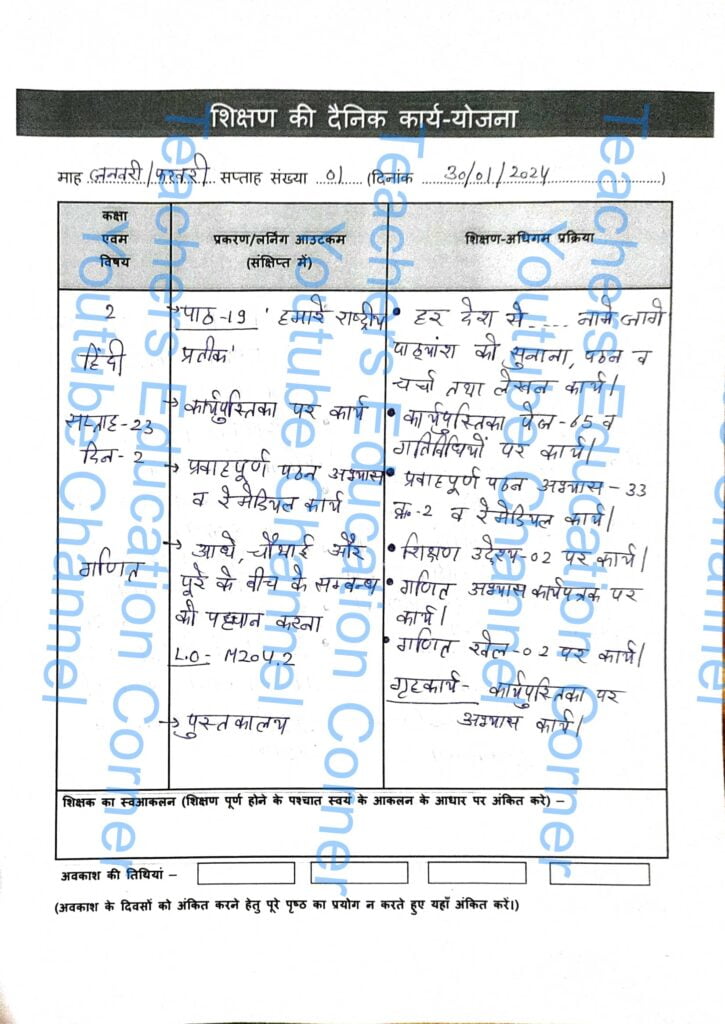 शिक्षण की दैनिक कार्य-योजना
माह जनवरी/फरवरी सप्ताह संख्या 01 (दिनांक 30/01/2024)
कक्षा
एवम
विषय
प्रकरण/लर्निंग आउटकम
(संक्षिप्त में)
शिक्षण-अधिगम प्रक्रिया
2
हिंदी
सप्ताह-23
दिन-2
गणित
→ पाठ-19 'हमारे राष्ट्रीय
प्रतीक'
→ कार्यपुस्तिका पर कार्य
→ प्रवाहपूर्ण पठन अभ्यास
व रेमेडियल कार्य
→ आधे, चौथाई और
पूरे के बीच के सम्बन्ध
की पहचान करना
L.O- M204.2
→ पुस्तकालय
• हर देश से .... जाने
पाठ्यांश को सुनाना, पठन व
चर्चा तथा लेखन कार्य।
• कार्यपुस्तिका पेज-65 व
गतिविधियों पर कार्य।
• प्रवाहपूर्ण पठन अभ्यास-33
क्र.-2 व रेमेडियल कार्य।
• शिक्षण उद्देश्य-02 पर कार्य।
• गणित अभ्यास कार्यपत्रक पर
कार्य।
• गणित खेल-02 पर कार्य।
गृहकार्य- कार्यपुस्तिका पर
अभ्यास कार्य।
शिक्षक का स्वआकलन (शिक्षण पूर्ण होने के पश्चात स्वयं के आकलन के आधार पर अंकित करे) –
अवकाश की तिथियां –
(अवकाश के दिवसों को अंकित करने हेतु पूरे पृष्ठ का प्रयोग न करते हुए यहाँ अंकित करें।)
Teachers Education Corner
Youtube Channel
Teachers Education Corner
Youtube Channel
Teachers Education Corner
Youtube Channel